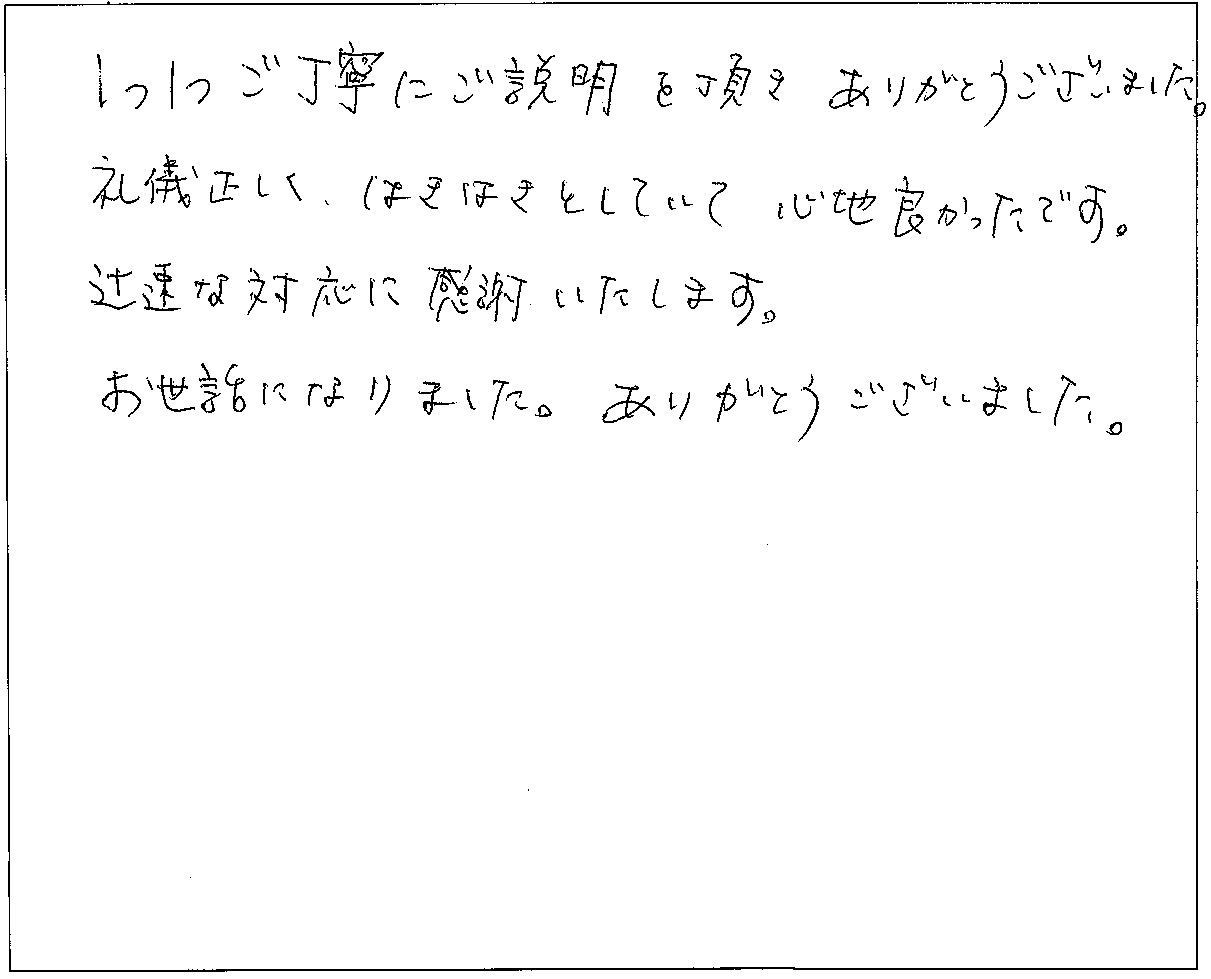 1つ1つご丁寧にご説明を頂き ありがとうございました。
礼儀正しく、はきはきとしていて 心地良かったです。
迅速な対応に感謝いたします。
お世話になりました。ありがとうございました。